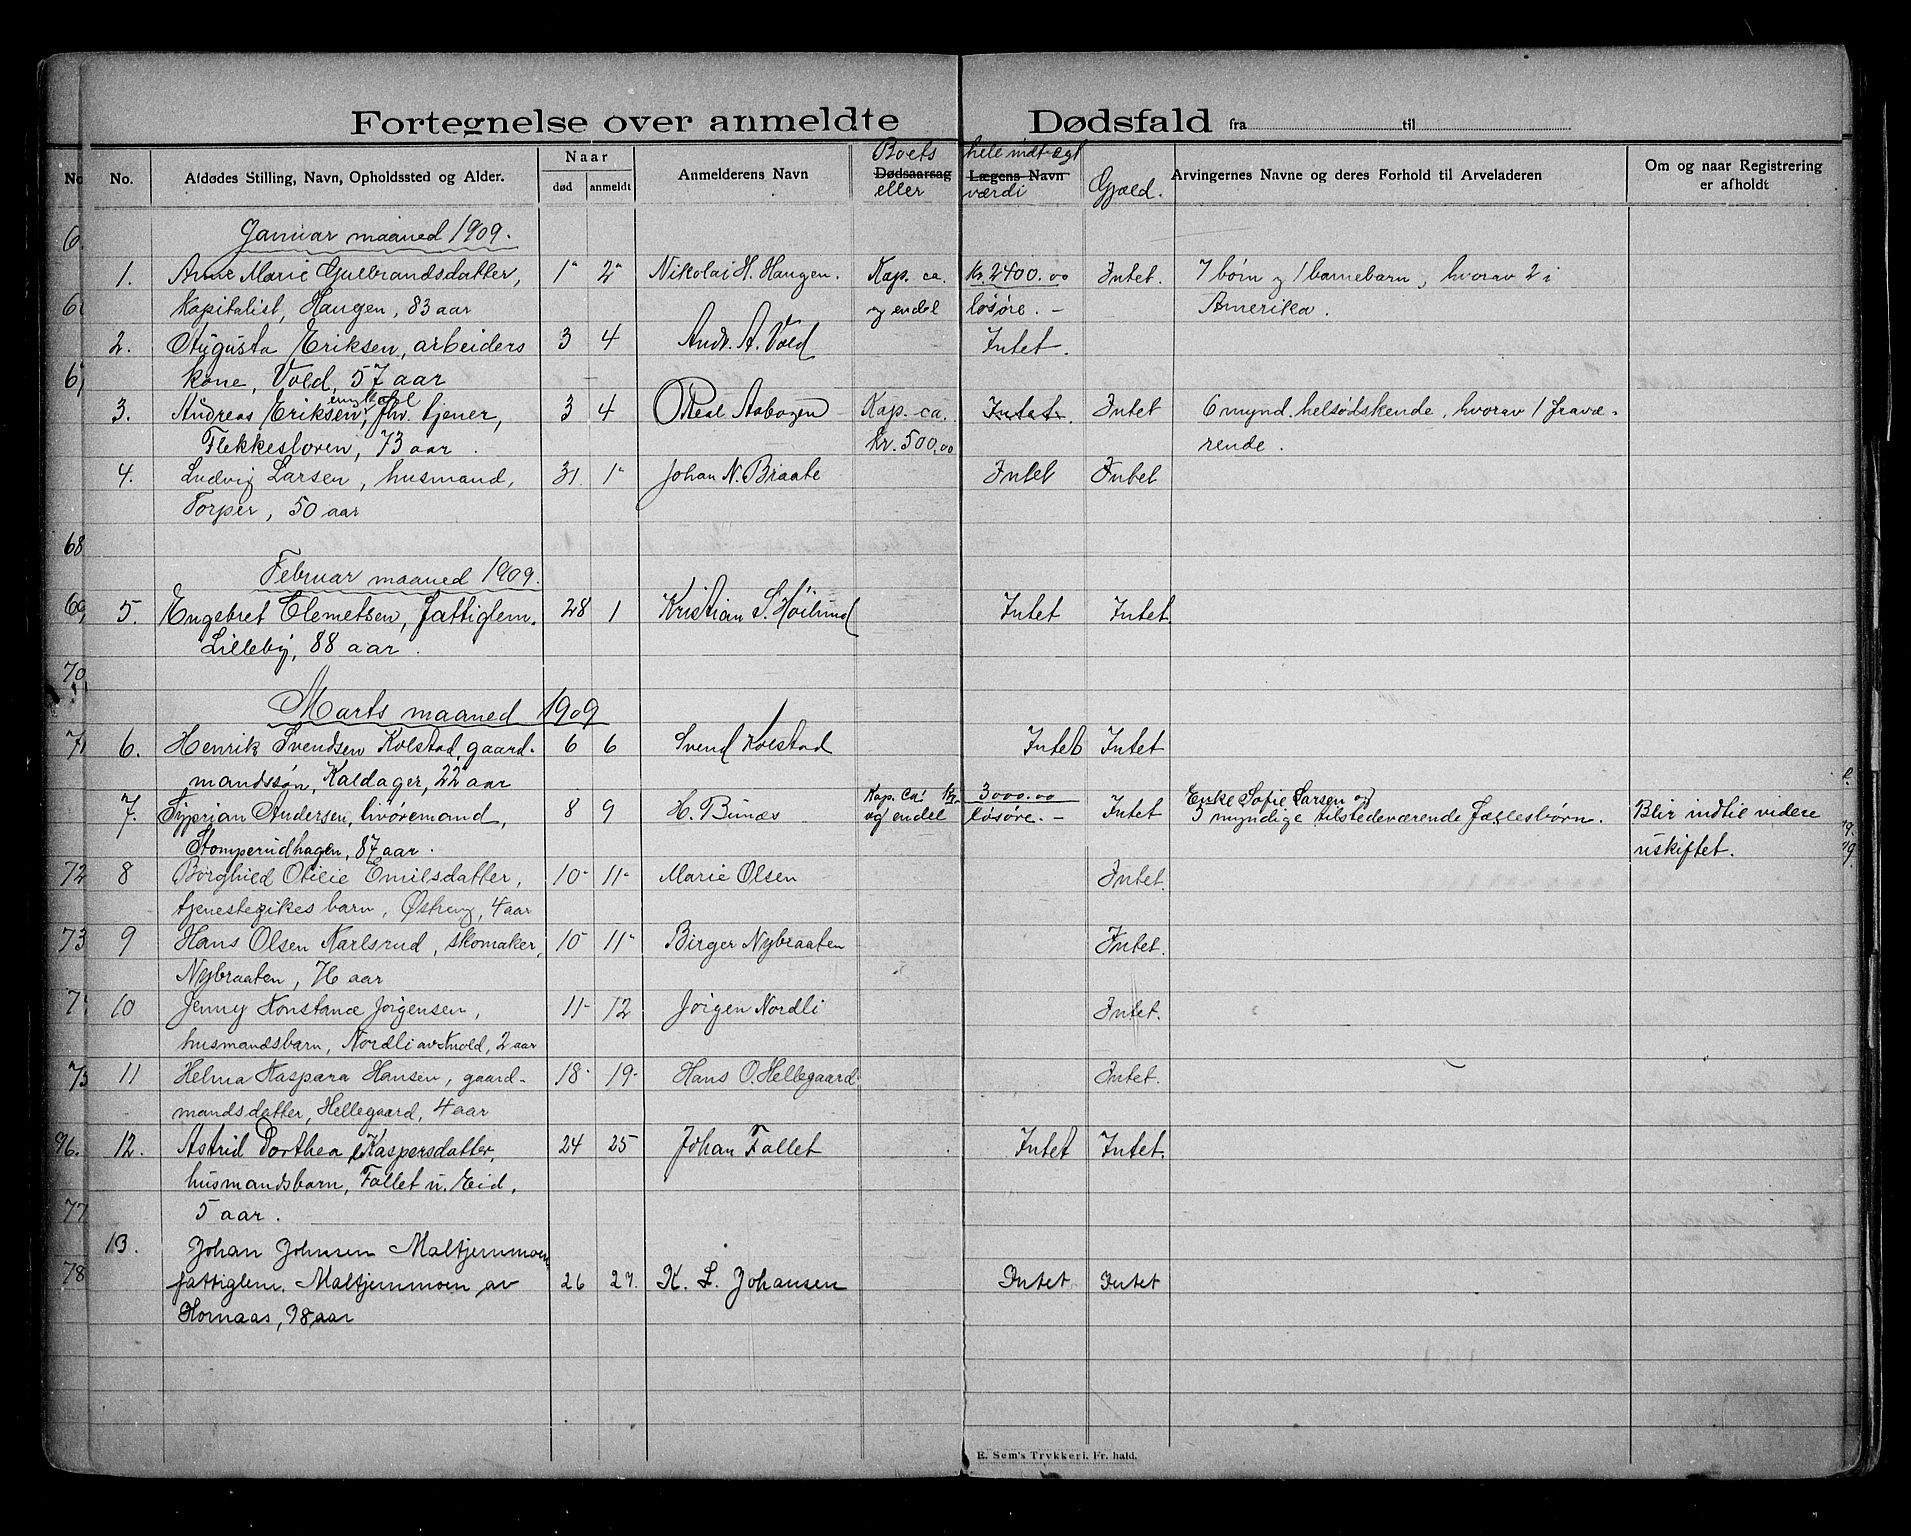 Fortegnelse over anmeldte Dødsfald fra til
No. Afdødes Stilling, Navn, Opholdssted og Alder. Naar død anmeldt Anmelderens Navn Dødsaarsag Boets eller Lægens Navn hele indtægt værdi Gjæld. Arvingernes Navne og deres Forhold til Arveladeren Om og naar Registrering er afholdt
Januar maaned 1909.
1. Anne Marie Gulbrandsdatter, 1" 2" Nikolai H. Haugen. Kap. ca. kr. 2400.00 Intet. 7 børn og 1 barnebarn, hvorav 2 i
kapitalist, Haugen, 83 aar og endel løsøre. - Amerika.
2. Augusta Eriksen, arbeiders 3 4 Andr. A. Vold Intet.
kone, Vold, 57 aar
3. Andreas Eriksen, ungkarl fhv. tjener, 3 4 Oleal Aabogen Kap. ca. Intet. Intet 6 mynd. helsødskende, hvorav 1 fravæ-
Flekkesloven, 73 aar. kr. 500.00 rende.
4. Ludvig Larsen, husmand, 31 1" Johan N. Braate Intet Intet
Torper, 50 aar
68
Februar maaned 1909.
69 5. Engebret Clemetsen, fattiglem. 28 1 Kristian S. Höilund Intet Intet
Lilleby, 88 aar.
70
Marts maaned 1909
71 6. Henrik Svendsen Kolstad, gaard- 6 6 Svend Kolstad Intet Intet
mandssøn, Kaldager, 22 aar
7. Syprian Andersen, livøremand, 8 9 H. Bunæs Kap. ca. kr. 3000.00 Intet Enke Sofie Larsen og
Stomperudhagen, 87 aar. og endel løsøre. - 3 myndige tilstedeværende fællesbørn. Blir indtil videre
uskiftet.
72 8 Borghild Otilie Emilsdatter, 10- 11- Marie Olsen Intet.
tjenestepikes barn, Østreng, 4 aar
73 9 Hans Olsen Karlsrud, skomaker, 10- 11- Birger Nybraaten Intet.
Nybraaten, 76 aar
10 Jenny Konstance Jørgensen, 11- 12 Jörgen Nordli Intet.
husmandsbarn, Nordli av Knold, 2 aar
75 11 Helma Kaspara Hansen, gaard- 18- 19- Hans O. Hellegaard. Intet.
mandsdatter, Hellegaard, 4 aar
12. Astrid Dorthea Kaspersdatter, 24 25 Johan Fallet Intet Intet.
husmandsbarn, Fallet u. Eid,
77 5 aar.
13. Johan Johnsen Maltjernmoen,
78 fattiglem. Maltjernmoen av 26 27. K. L. Johansen Intet. Intet
Hornaas, 98 aar
E. Sem's Trykkeri. Fr. hald.